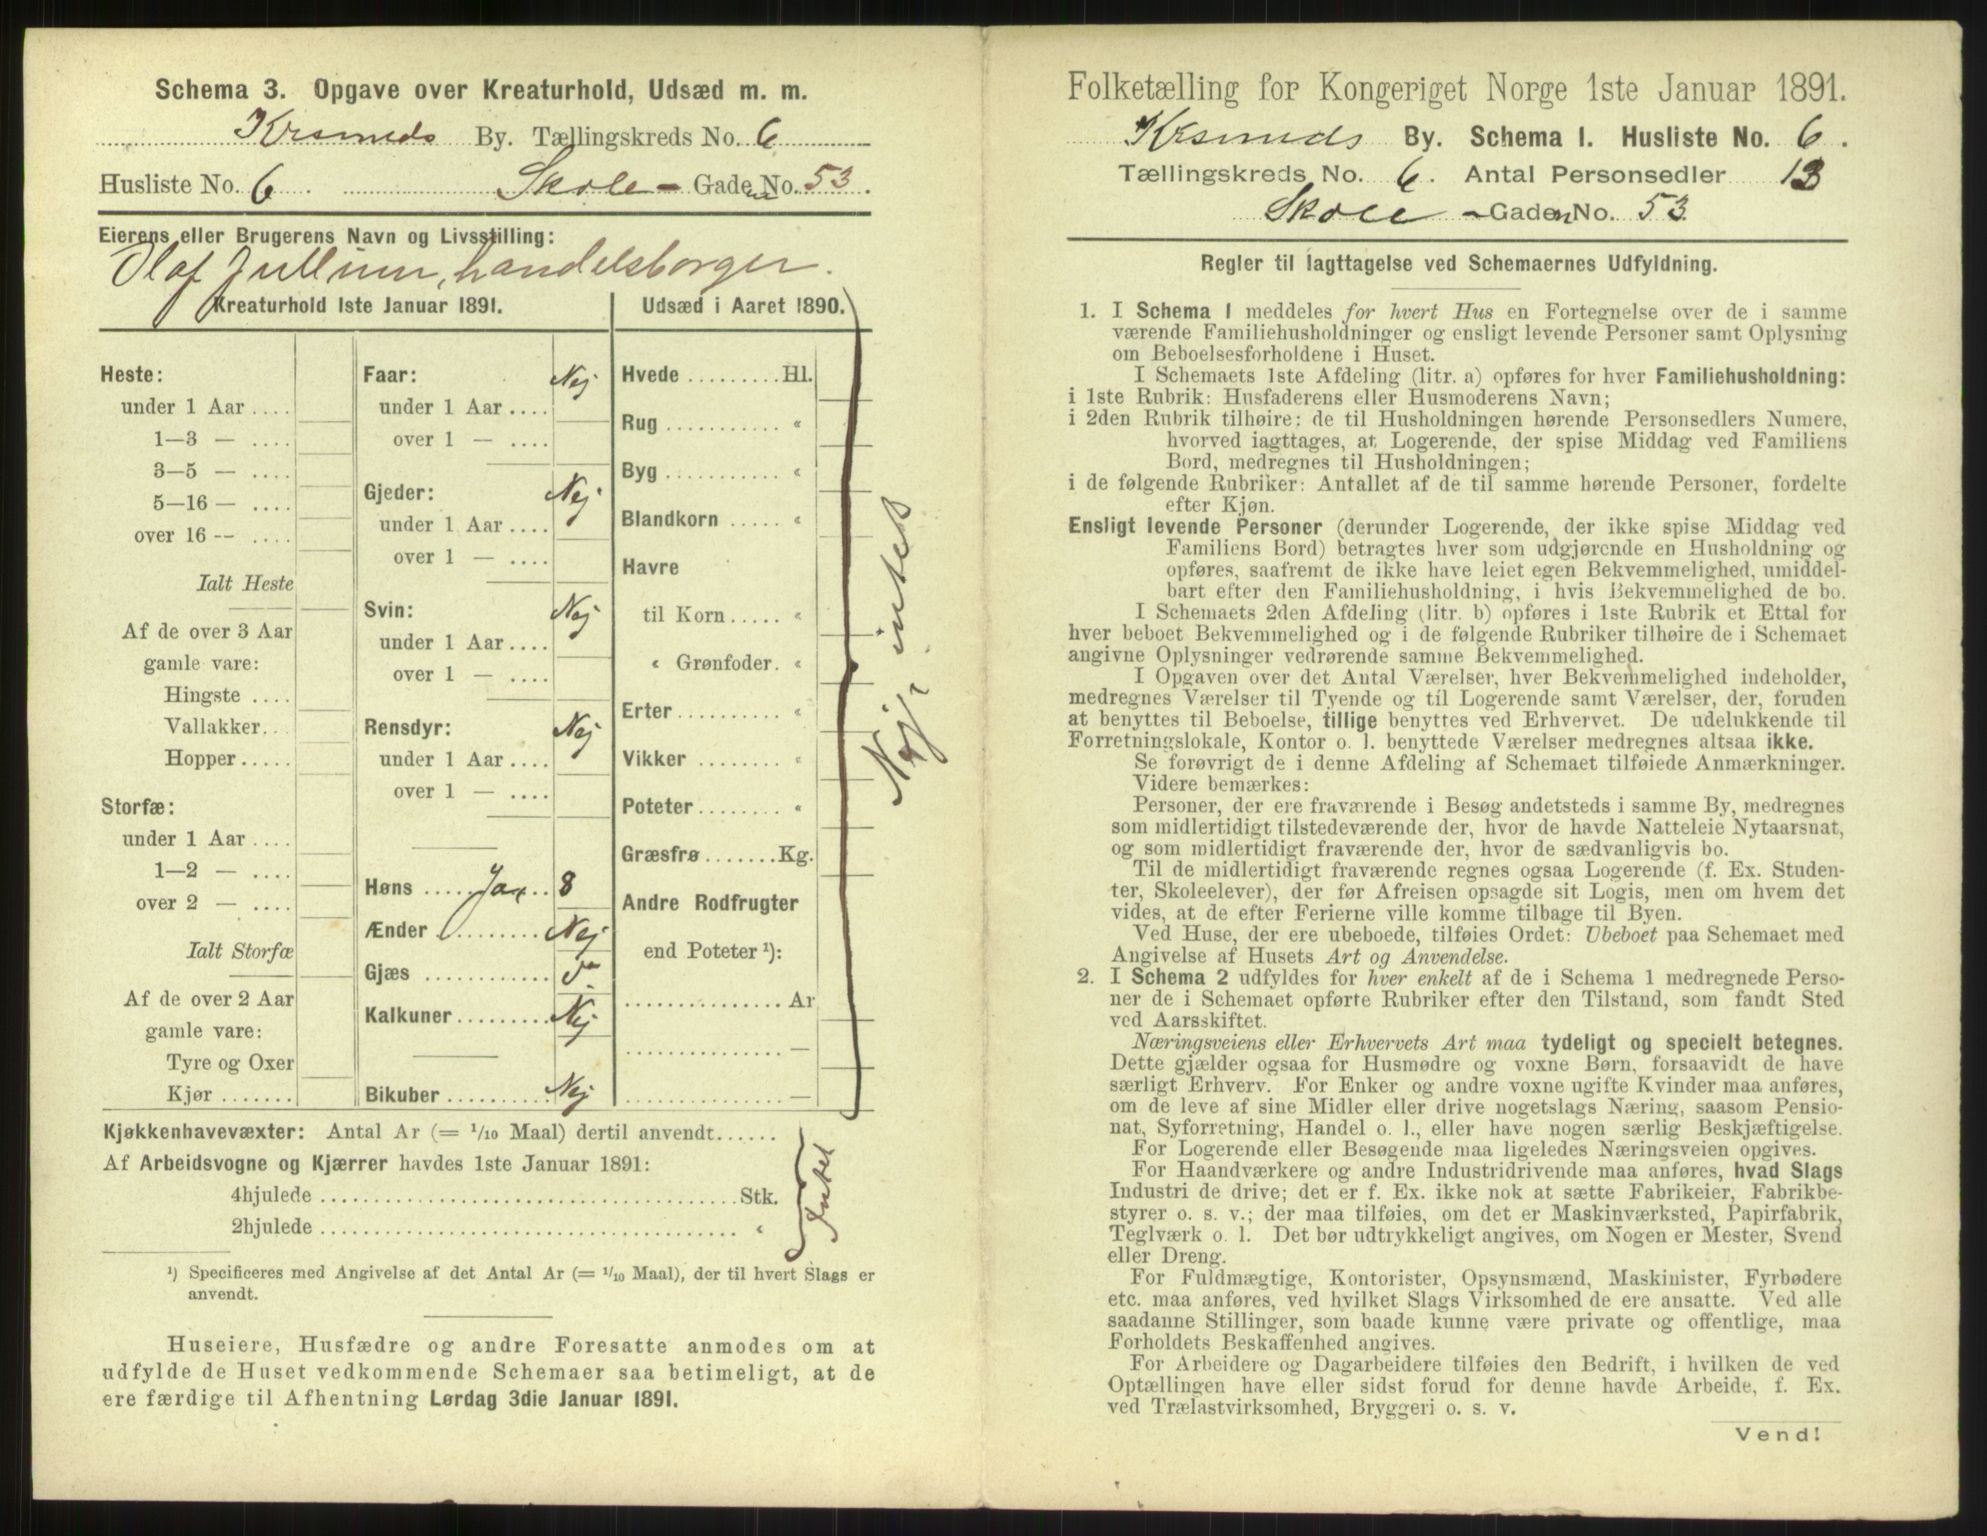 Schema 3. Opgave over Kreaturhold, Udsæd m. m.
Krsunds By. Tællingskreds No. 6
Husliste No. 6 Skole- Gaden No. 53.
Eierens eller Brugerens Navn og Livsstilling:
Olaf Jullum, handelsborger.
Kreaturhold 1ste Januar 1891.
Heste:
under 1 Aar ....
1—3 — ....
3—5 — ....
5—16 — ....
over 16 -- ....
Ialt Heste
Af de over 3 Aar
gamle vare:
Hingste ....
Vallakker...
Hopper.....
Storfæ:
under 1 Aar ....
1—2 — ....
over 2 — ....
Ialt Storfæ
Af de over 2 Aar
gamle vare:
Tyre og Oxer
Kjør .......
Faar: Nej
under 1 Aar ....
over 1 — ....
Gjeder: Nej
under 1 Aar ....
over 1 — ....
Svin: Nej
under 1 Aar ....
over 1 — ....
Rensdyr: Nej
under 1 Aar ....
over 1 — ....
Høns ..... Ja .. 8
Ænder ......... Nej
Gjæs ..........
Kalkuner ........ Nej
Bikuber ......... Nej
Udsæd i Aaret 1890.
Hvede ......... Hl.
Rug ........... «
Byg ........... «
Blandkorn ..... «
Havre
til Korn ..... «
« Grønfoder. «
Erter .......... «
Vikker ........ «
Poteter ........ «
Græsfrø ....... Kg.
Andre Rodfrugter
end Poteter ¹):
............... Ar
............... —
............... —
Nej, intet
Kjøkkenhavevæxter: Antal Ar (= 1/10 Maal) dertil anvendt......
Af Arbeidsvogne og Kjærrer havdes 1ste Januar 1891:
4hjulede ........................ Stk.
2hjulede ........................ «
Intet
¹) Specificeres med Angivelse af det Antal Ar (= 1/10 Maal), der til hvert Slags er
anvendt.
Huseiere, Husfædre og andre Foresatte anmodes om at
udfylde de Huset vedkommende Schemaer saa betimeligt, at de
ere færdige til Afhentning Lørdag 3die Januar 1891.
Folketælling for Kongeriget Norge 1ste Januar 1891.
Krsunds By. Schema I. Husliste No. 6.
Tællingskreds No. 6. Antal Personsedler 13
Skole - Gaden No. 53
Regler til Iagttagelse ved Schemaernes Udfyldning.
1. I Schema 1 meddeles for hvert Hus en Fortegnelse over de i samme
værende Familiehusholdninger og ensligt levende Personer samt Oplysning
om Beboelsesforholdene i Huset.
I Schemaets 1ste Afdeling (litr. a) opføres for hver Familiehusholdning:
i 1ste Rubrik: Husfaderens eller Husmoderens Navn;
i 2den Rubrik tilhøire: de til Husholdningen hørende Personsedlers Numere,
hvorved iagttages, at Logerende, der spise Middag ved Familiens
Bord, medregnes til Husholdningen;
i de følgende Rubriker: Antallet af de til samme hørende Personer, fordelte
efter Kjøn.
Ensligt levende Personer (derunder Logerende, der ikke spise Middag ved
Familiens Bord) betragtes hver som udgjørende en Husholdning og
opføres, saafremt de ikke have leiet egen Bekvemmelighed, umiddel-
bart efter den Familiehusholdning, i hvis Bekvemmelighed de bo.
I Schemaets 2den Afdeling (litr. b) opføres i 1ste Rubrik et Ettal for
hver beboet Bekvemmelighed og i de følgende Rubriker tilhøire de i Schemaet
angivne Oplysninger vedrørende samme Bekvemmelighed.
I Opgaven over det Antal Værelser, hver Bekvemmelighed indeholder,
medregnes Værelser til Tyende og til Logerende samt Værelser, der, foruden
at benyttes til Beboelse, tillige benyttes ved Erhvervet. De udelukkende til
Forretningslokale, Kontor o. l. benyttede Værelser medregnes altsaa ikke.
Se forøvrigt de i denne Afdeling af Schemaet tilføiede Anmærkninger.
Videre bemærkes:
Personer, der ere fraværende i Besøg andetsteds i samme By, medregnes
som midlertidigt tilstedeværende der, hvor de havde Natteleie Nytaarsnat,
og som midlertidigt fraværende der, hvor de sædvanligvis bo.
Til de midlertidigt fraværende regnes ogsaa Logerende (f. Ex. Studen-
ter, Skoleelever), der før Afreisen opsagde sit Logis, men om hvem det
vides, at de efter Ferierne ville komme tilbage til Byen.
Ved Huse, der ere ubeboede, tilføies Ordet: Ubeboet paa Schemaet med
Angivelse af Husets Art og Anvendelse.
2. I Schema 2 udfyldes for hver enkelt af de i Schema 1 medregnede Perso-
ner de i Schemaet opførte Rubriker efter den Tilstand, som fandt Sted
ved Aarsskiftet.
Næringsveiens eller Erhvervets Art maa tydeligt og specielt betegnes.
Dette gjælder ogsaa for Husmødre og voxne Børn, forsaavidt de have
særligt Erhverv. For Enker og andre voxne ugifte Kvinder maa anføres,
om de leve af sine Midler eller drive nogetslags Næring, saasom Pensio-
nat, Syforretning, Handel o. l., eller have nogen særlig Beskjæftigelse.
For Logerende eller Besøgende maa ligeledes Næringsveien opgives.
For Haandværkere og andre Industridrivende maa anføres, hvad Slags
Industri de drive; det er f. Ex. ikke nok at sætte Fabrikeier, Fabrikbe-
styrer o. s. v.; der maa tilføies, om det er Maskinværksted, Papirfabrik,
Teglværk o. l. Det bør udtrykkeligt angives, om Nogen er Mester, Svend
eller Dreng.
For Fuldmægtige, Kontorister, Opsynsmænd, Maskinister, Fyrbødere
etc. maa anføres, ved hvilket Slags Virksomhed de ere ansatte. Ved alle
saadanne Stillinger, som baade kunne være private og offentlige, maa
Forholdets Beskaffenhed angives.
For Arbeidere og Dagarbeidere tilføies den Bedrift, i hvilken de ved
Optællingen have eller sidst forud for denne havde Arbeide, f. Ex.
ved Trælastvirksomhed, Bryggeri o. s. v.
Vend!